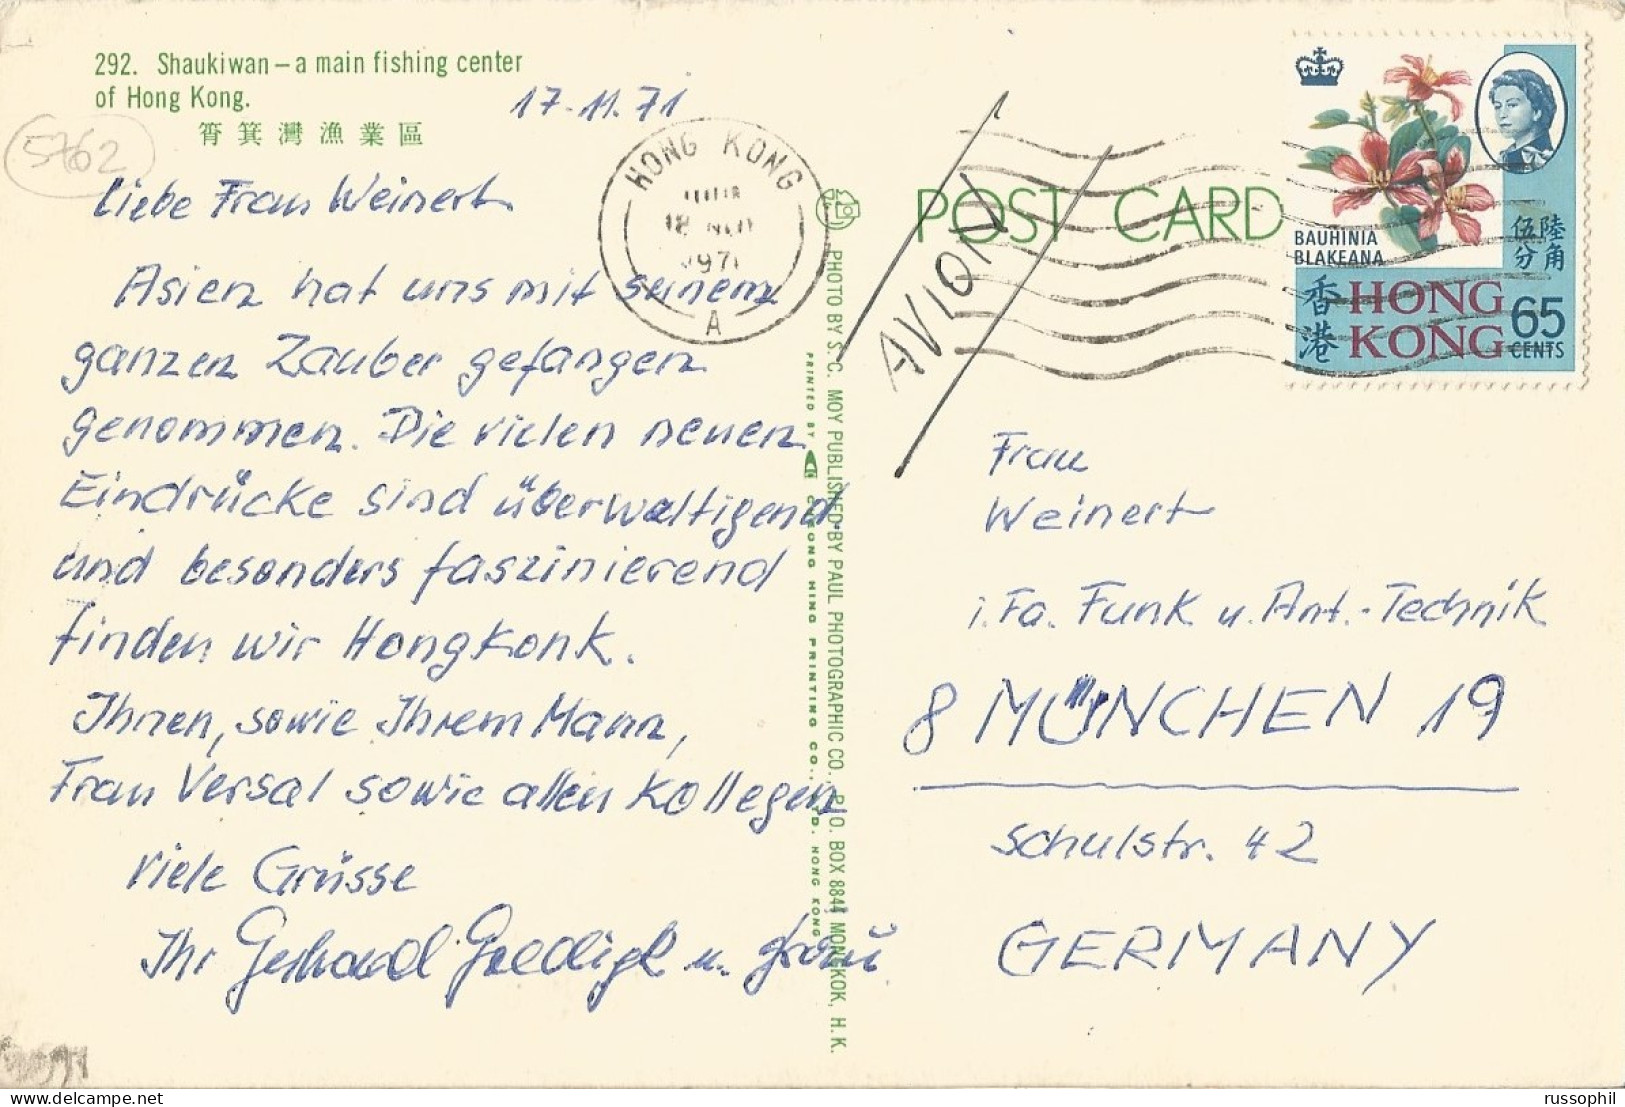 292. Shaukiwan – a main fishing center
of Hong Kong.
筲箕灣漁業區
5762
17.11.71
Liebe Frau Weinert
Asien hat uns mit seinem
ganzen Zauber gefangen
genommen. Die vielen neuen
Eindrücke sind überwältigend
und besonders faszinierend
finden wir Hongkonk.
Ihnen, sowie Ihrem Mann,
Frau Versal sowie allen Kollegen
viele Grüsse
Ihr Gerhard u. Frau
HONG KONG
18 NOV
1971
A
PHOTO BY S.C. MOY PUBLISHED BY PAUL PHOTOGRAPHIC CO., P.O. BOX 8844 MONGKOK, H.K.
PRINTED BY CHEONG MING PRINTING CO., LTD. HONG KONG
POST CARD
AVION
BAUHINIA
BLAKEANA
伍分
陸角
香港
HONG
KONG
65
CENTS
Frau
Weinert
i. Fa. Funk u. Ant.-Technik
8 MÜNCHEN 19
Schulstr. 42
GERMANY
russophil